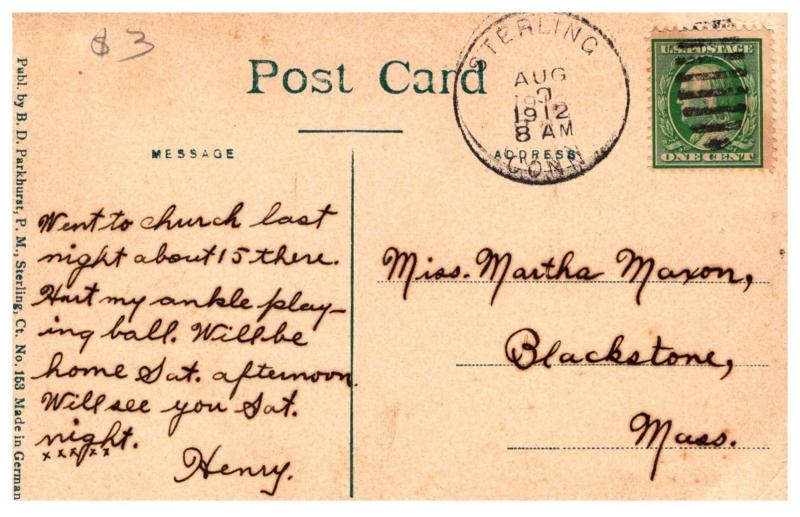 $3
Post Card
STERLING
AUG
1912
8 AM
CONN
U.S. POSTAGE
ONE CENT
MESSAGE
ADDRESS
Went to church last
night about 15 there.
Hurt my ankle play-
ing ball. Will be
home Sat. afternoon
Will see you Sat.
night.
xxxxx
Henry.
Miss. Martha Maxon,
Blackstone,
Mass.
Publ. by B. D. Parkhurst, P. M., Sterling, Ct. No. 153 Made in German